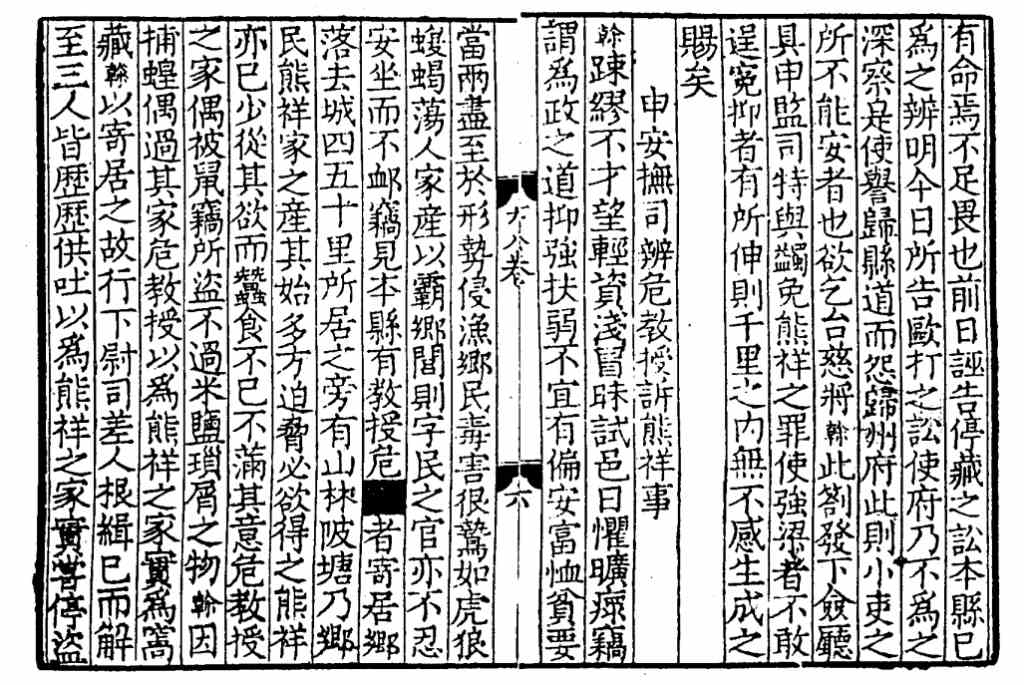 有命焉不足畏也前日誣告停藏之訟本縣已
為之辨明今日所告歐打之訟使府乃不為之
深察是使譽歸縣道而怨歸州府此則小吏之
所不能安者也欲乞台慈將榦此劄發下僉廳
具申監司特與蠲免熊祥之罪使強梁者不敢
逞寃抑者有所伸則千里之内無不感生成之
賜矣
申安撫司辨危教授訴熊祥事
榦踈繆不才望輕資淺冒昧試邑日懼曠瘝竊
謂為政之道抑強扶弱不宜有偏安富恤貧要
十八卷
六
當兩盡至於形勢侵漁鄉民毒害很鷙如虎狼
蝮蝎蕩人家産以霸鄉閭則字民之官亦不忍
安坐而不䘏竊見本縣有教授危■者寄居鄉
落去城四五十里所居之旁有山林陂塘乃鄉
民熊祥家之産其始多方迫脅必欲得之熊祥
亦已少從其欲而蠶食不已不滿其意危教授
之家偶被鼠竊所盗不過米鹽瑣屑之物榦因
捕蝗偶過其家危教授以為熊祥之家實為窩
藏榦以寄居之故行下尉司差人根緝已而解
至三人皆歷歷供吐以為熊祥之家實曾停盗